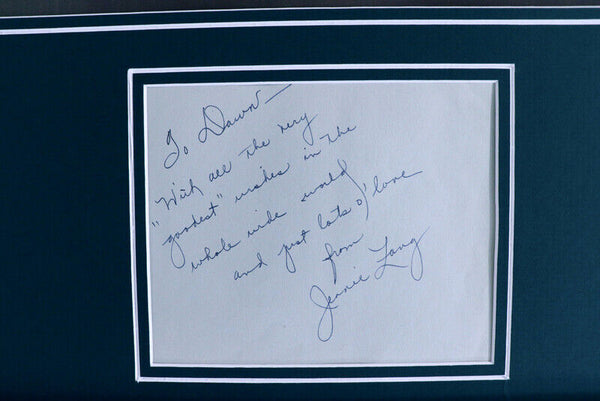 To Dawn—
With all the very
"goodest" wishes in the
whole wide world
and just lots o' love
from
Jennie Lang